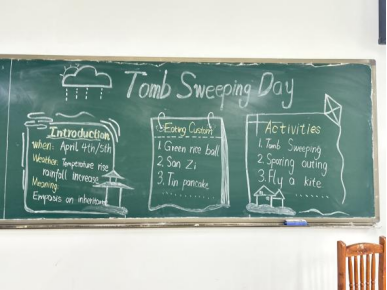 Tomb Sweeping Day
Introduction
When: April 4th/5th
Weather: Temperature rise
rainfall increase
Meaning:
Empasis on inheritance
Eating Custom
1. Green rice ball
2. San Zi
3. Tin pancake
Activities
1. Tomb Sweeping
2. Sparing outing
3. Fly a kite